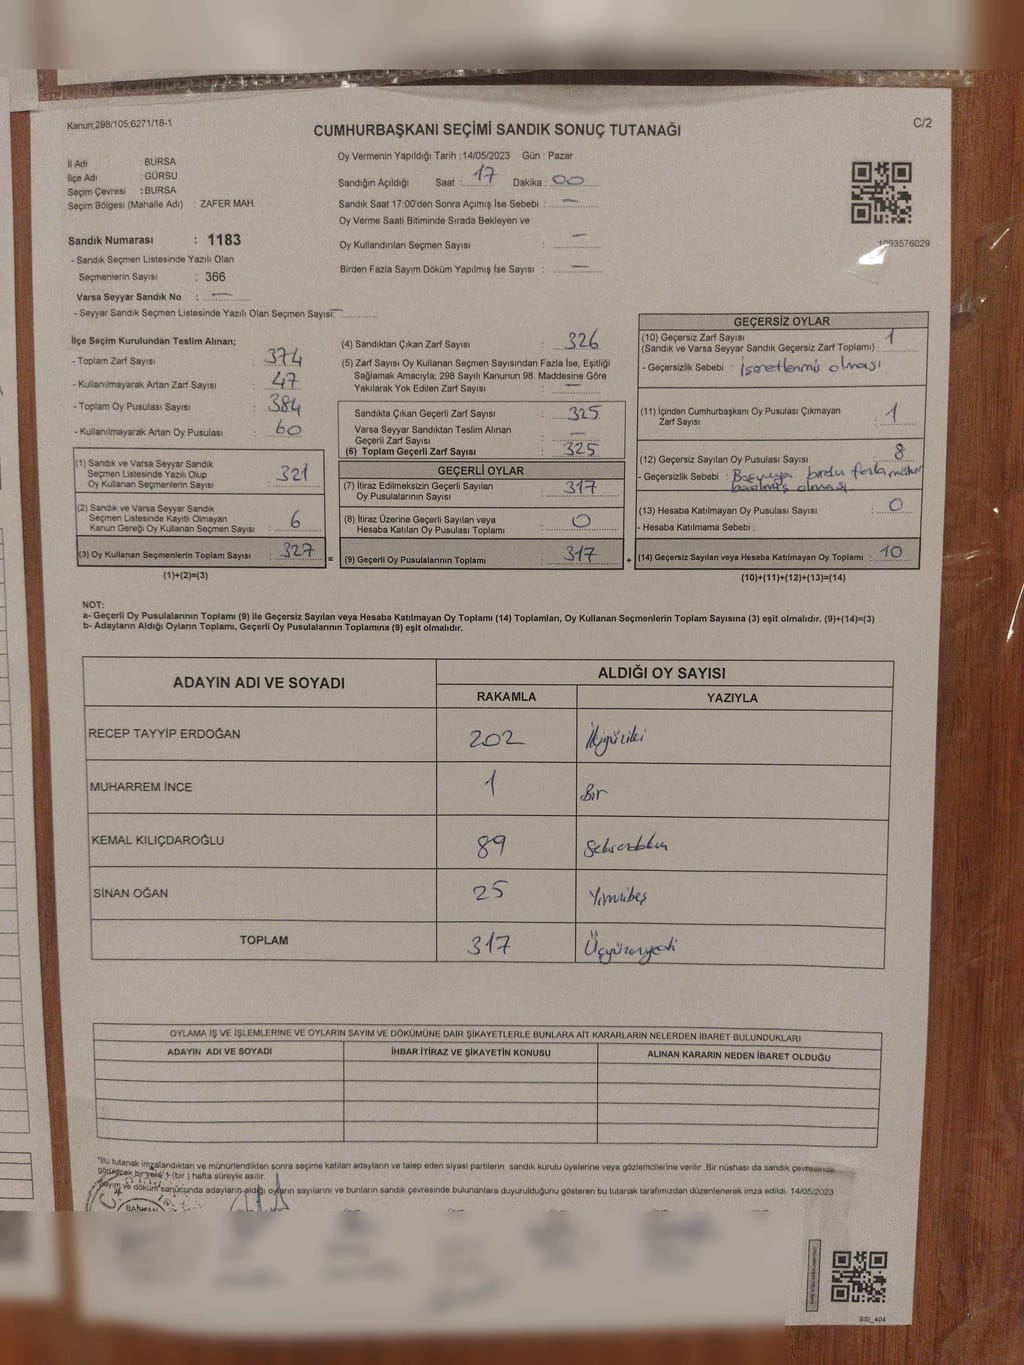 Kanun;298/105;6271/18-1
C/2
CUMHURBAŞKANI SEÇİMİ SANDIK SONUÇ TUTANAĞI
İl Adı : BURSA
İlçe Adı : GÜRSU
Seçim Çevresi : BURSA
Seçim Bölgesi (Mahalle Adı) : ZAFER MAH.
Sandık Numarası : 1183
- Sandık Seçmen Listesinde Yazılı Olan
Seçmenlerin Sayısı : 366
Varsa Seyyar Sandık No : —
- Seyyar Sandık Seçmen Listesinde Yazılı Olan Seçmen Sayısı: —
Oy Vermenin Yapıldığı Tarih :14/05/2023 Gün : Pazar
Sandığın Açıldığı Saat : 17 Dakika : 00
Sandık Saat 17:00'den Sonra Açımış İse Sebebi : —
Oy Verme Saati Bitiminde Sırada Bekleyen ve
Oy Kullandırılan Seçmen Sayısı : —
Birden Fazla Sayım Döküm Yapılmış İse Sayısı : —
1093576029
İlçe Seçim Kurulundan Teslim Alınan;
- Toplam Zarf Sayısı : 374
- Kullanılmayarak Artan Zarf Sayısı : 47
- Toplam Oy Pusulası Sayısı : 384
- Kullanılmayarak Artan Oy Pusulası : 60
(1) Sandık ve Varsa Seyyar Sandık
Seçmen Listesinde Yazılı Olup
Oy Kullanan Seçmenlerin Sayısı : 321
(2) Sandık ve Varsa Seyyar Sandık
Seçmen Listesinde Kayıtlı Olmayan
Kanun Gereği Oy Kullanan Seçmen Sayısı : 6
(3) Oy Kullanan Seçmenlerin Toplam Sayısı : 327
(1)+(2)=(3)
(4) Sandıktan Çıkan Zarf Sayısı : 326
(5) Zarf Sayısı Oy Kullanan Seçmen Sayısından Fazla İse, Eşitliği
Sağlamak Amacıyla; 298 Sayılı Kanunun 98. Maddesine Göre
Yakılarak Yok Edilen Zarf Sayısı : —
Sandıkta Çıkan Geçerli Zarf Sayısı : 325
Varsa Seyyar Sandıktan Teslim Alınan
Geçerli Zarf Sayısı : —
(6) Toplam Geçerli Zarf Sayısı : 325
GEÇERLİ OYLAR
(7) İtiraz Edilmeksizin Geçerli Sayılan
Oy Pusulalarının Sayısı : 317
(8) İtiraz Üzerine Geçerli Sayılan veya
Hesaba Katılan Oy Pusulası Toplamı : 0
=
(9) Geçerli Oy Pusulalarının Toplamı : 317
+
GEÇERSİZ OYLAR
(10) Geçersiz Zarf Sayısı
(Sandık ve Varsa Seyyar Sandık Geçersiz Zarf Toplamı) : 1
- Geçersizlik Sebebi : İşaretlenmiş olması
(11) İçinden Cumhurbaşkanı Oy Pusulası Çıkmayan
Zarf Sayısı : 1
(12) Geçersiz Sayılan Oy Pusulası Sayısı : 8
- Geçersizlik Sebebi : fazla mühür
basılmış olması
(13) Hesaba Katılmayan Oy Pusulası Sayısı : 0
- Hesaba Katılmama Sebebi :
(14) Geçersiz Sayılan veya Hesaba Katılmayan Oy Toplamı : 10
(10)+(11)+(12)+(13)=(14)
NOT:
a- Geçerli Oy Pusulalarının Toplamı (9) ile Geçersiz Sayılan veya Hesaba Katılmayan Oy Toplamı (14) Toplamları, Oy Kullanan Seçmenlerin Toplam Sayısına (3) eşit olmalıdır. (9)+(14)=(3)
b- Adayların Aldığı Oyların Toplamı, Geçerli Oy Pusulalarının Toplamına (9) eşit olmalıdır.
ADAYIN ADI VE SOYADI
ALDIĞI OY SAYISI
RAKAMLA YAZIYLA
RECEP TAYYİP ERDOĞAN 202 İkiyüziki
MUHARREM İNCE 1 Bir
KEMAL KILIÇDAROĞLU 89 Seksendokuz
SİNAN OĞAN 25 Yirmibeş
TOPLAM 317 Üçyüzonyedi
OYLAMA İŞ VE İŞLEMLERİNE VE OYLARIN SAYIM VE DÖKÜMÜNE DAİR ŞİKAYETLERLE BUNLARA AİT KARARLARIN NELERDEN İBARET BULUNDUKLARI
ADAYIN ADI VE SOYADI İHBAR İTİRAZ VE ŞİKAYETİN KONUSU ALINAN KARARIN NEDEN İBARET OLDUĞU
"Bu tutanak imzalandıktan ve mühürlendikten sonra seçime katılan adayların ve talep eden siyasi partilerin sandık kurulu üyelerine veya gözlemcilerine verilir .Bir nüshası da sandık çevresinde
görülecek bir yere 1 (bir ) hafta süreyle asılır.
Sayım ve döküm sonucunda adayların aldığı oyların sayılarını ve bunların sandık çevresinde bulunanlara duyurulduğunu gösteren bu tutanak tarafımızdan düzenlenerek imza edildi. 14/05/2023
SSI_404